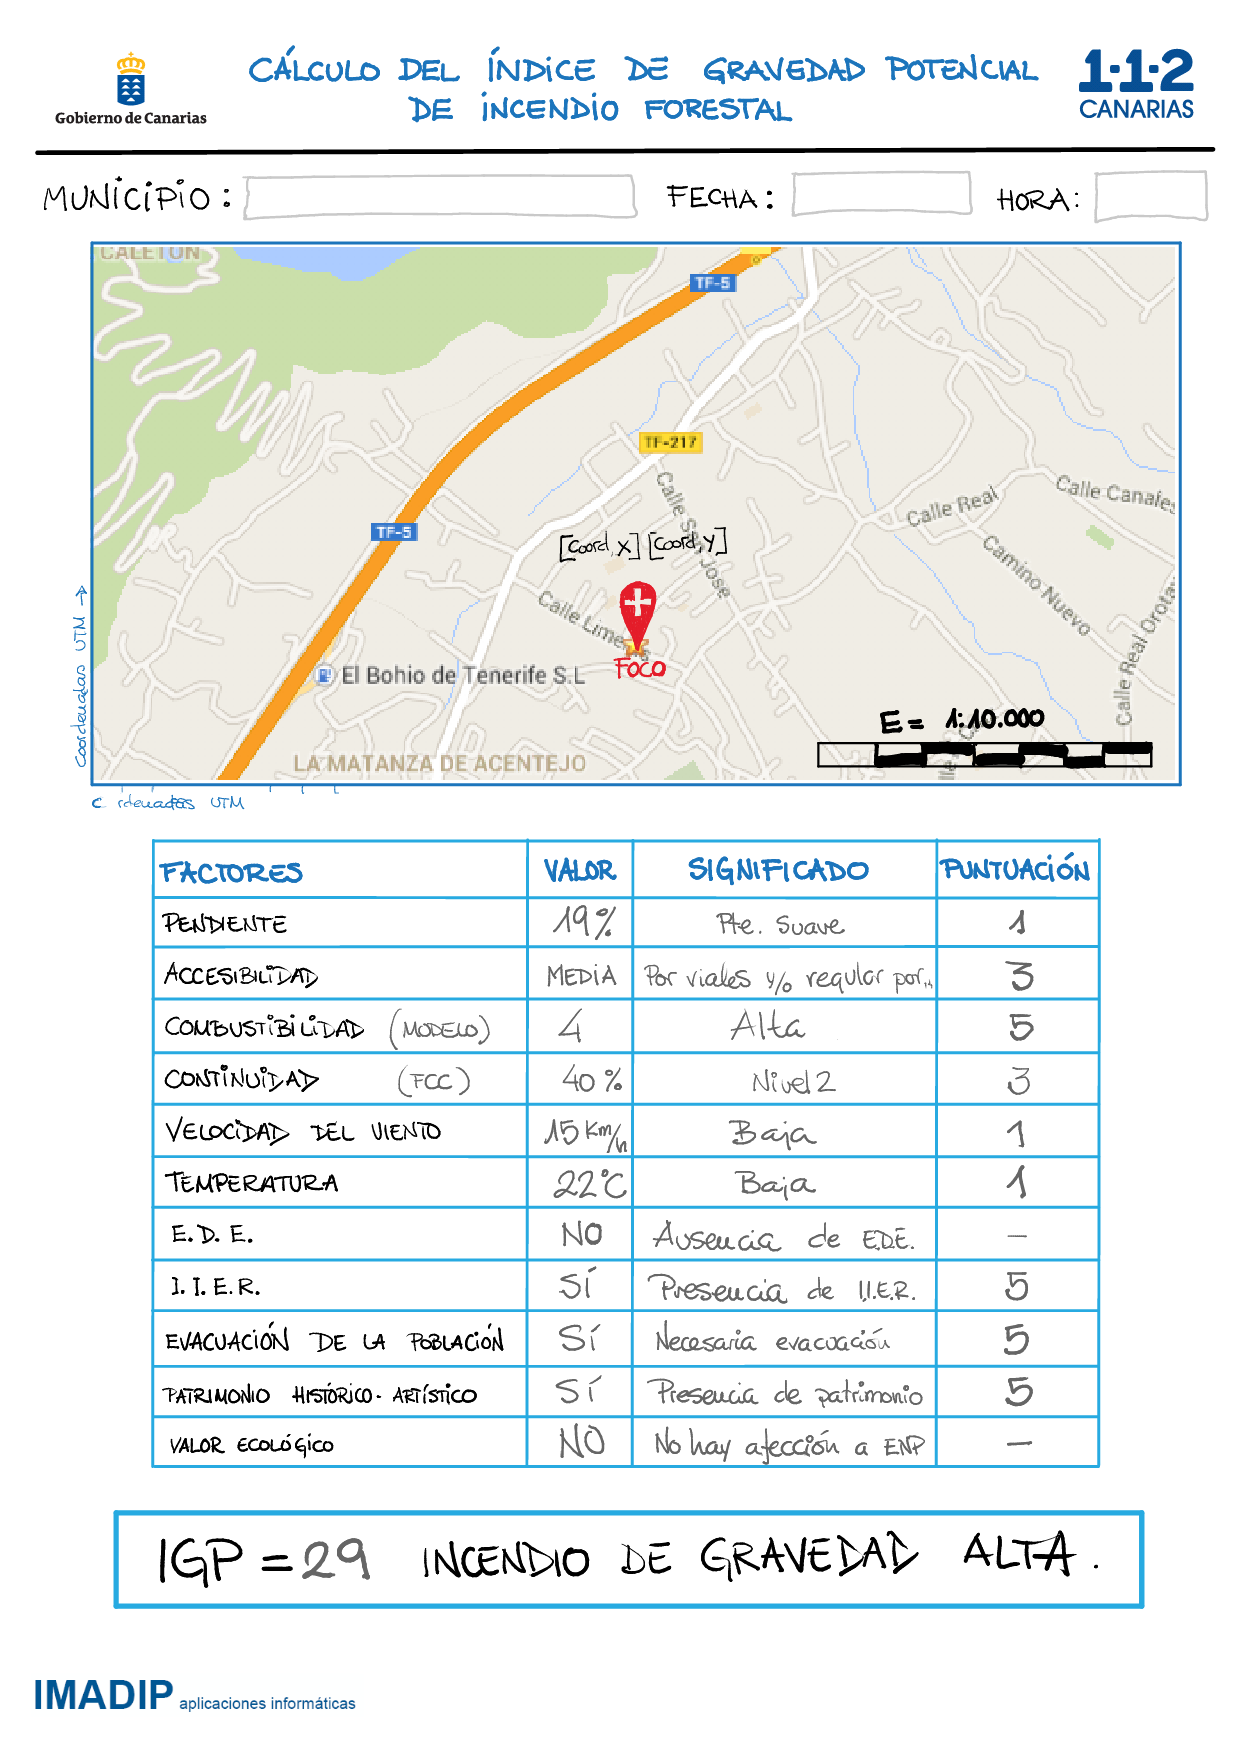 Gobierno de Canarias
CÁLCULO DEL ÍNDICE DE GRAVEDAD POTENCIAL
DE INCENDIO FORESTAL
1·1·2
CANARIAS
MUNICIPIO:
FECHA:
HORA:
CALETÓN
TF-5
TF-217
Calle San Jose
Calle Real
Calle Canales
TF-5
[Coord, X] [Coord, Y]
Camino Nuevo
Calle Limeras
FOCO
El Bohio de Tenerife S.L
Calle Real Orotava
E= 1:10.000
LA MATANZA DE ACENTEJO
Coordenadas UTM →
C rdenadas UTM
FACTORES VALOR SIGNIFICADO PUNTUACIÓN
PENDIENTE 19% Pte. Suave 1
ACCESIBILIDAD MEDIA Por viales y/o regular por... 3
COMBUSTIBILIDAD (MODELO) 4 Alta 5
CONTINUIDAD (FCC) 40% Nivel 2 3
VELOCIDAD DEL VIENTO 15 Km/h Baja 1
TEMPERATURA 22°C Baja 1
E.D.E. NO Ausencia de E.D.E. –
I.I.E.R. SÍ Presencia de I.I.E.R. 5
EVACUACIÓN DE LA POBLACIÓN SÍ Necesaria evacuación 5
PATRIMONIO HISTÓRICO-ARTÍSTICO SÍ Presencia de patrimonio 5
VALOR ECOLÓGICO NO No hay afección a ENP –
IGP = 29 INCENDIO DE GRAVEDAD ALTA.
IMADIP aplicaciones informáticas